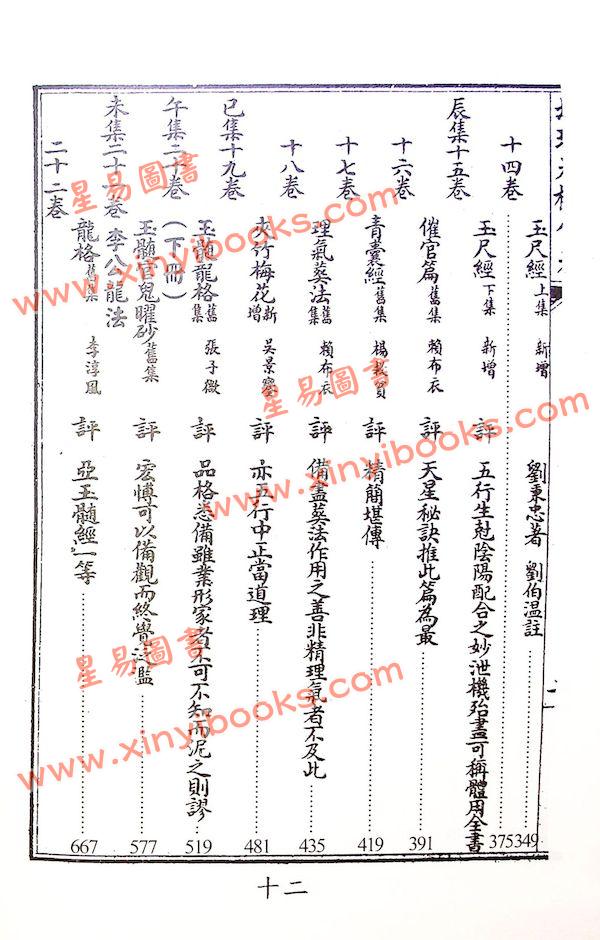 玉尺經 上集 新增 劉秉忠著 劉伯温註 349
十四卷 375
玉尺經 下集 新增 評 五行生尅陰陽配合之妙泄機殆盡可稱體用全書
辰集十五卷
催官篇 舊集 賴布衣 評 天星秘訣推此篇為最 391
十六卷
青囊經 舊集 楊救貧 評 精簡堪傳 419
十七卷
理氣葬法 舊集 賴布衣 評 備盡葬法作用之善非精理氣者不及此 435
十八卷
火竹梅花 新增 吳景鸞 評 亦五行中正當道理 481
巳集十九卷
玉髓龍格 舊集 張子微 評 品格悉備雖業形家者不可不知而泥之則謬 519
午集二十卷 (下冊)
玉髓官鬼曜砂 舊集 評 宏博可以備觀而終覺泛濫 577
未集二十一卷 李公龍法
龍格 舊集 李淳風 評 亞玉髓經一等 667
二十二卷
十二
星易圖書
www.xinyibooks.com
星易圖書
www.xinyibooks.com
星易圖書
www.xinyibooks.com